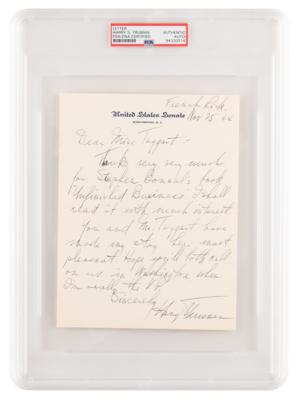 LETTER
HARRY S. TRUMAN
PSA/DNA CERTIFIED
AUTHENTIC
AUTO
PSA
French Lick
Nov 25 44
United States Senate
WASHINGTON, D.C.
Dear Miss Taggart:-
Thanks very very much
for Stephen Bonsal's book
"Unfinished Business" I shall
read it with much interest
You and Mr Taggart have
made my stay here most
pleasant Hope you'll both call
on us in Washington when
I'm really the V.P.
Sincerely
Harry Truman